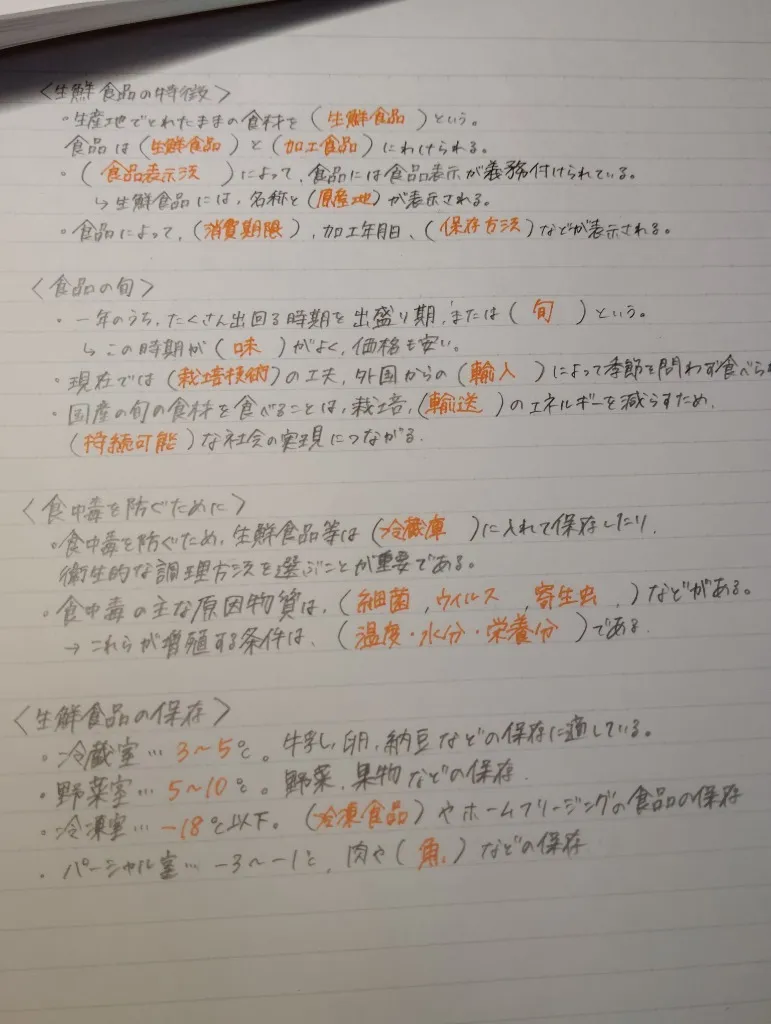 <生鮮食品の特徴>
・生産地でとれたままの食材を(生鮮食品)という。
食品は(生鮮食品)と(加工食品)にわけられる。
・(食品表示法)によって、食品には食品表示が義務付けられている。
↳生鮮食品には、名称と(原産地)が表示される。
・食品によって、(消費期限)、加工年月日、(保存方法)などが表示される。
<食品の旬>
・一年のうち、たくさん出回る時期を出盛り期、または(旬)という。
↳この時期が(味)がよく、価格も安い。
・現在では(栽培技術)の工夫、外国からの(輸入)によって季節を問わず食べら
・国産の旬の食材を食べることは、栽培、(輸送)のエネルギーを減らすため、
(持続可能)な社会の実現につながる。
<食中毒を防ぐために>
・食中毒を防ぐため、生鮮食品等は(冷蔵庫)に入れて保存したり、
衛生的な調理方法を選ぶことが重要である。
・食中毒の主な原因物質は、(細菌、ウィルス、寄生虫、)などがある。
→これらが増殖する条件は、(温度・水分・栄養分)である。
<生鮮食品の保存>
・冷蔵室…3~5℃。牛乳、卵、納豆などの保存に適している。
・野菜室…5~10℃。野菜、果物などの保存
・冷凍室…-18℃以下。(冷凍食品)やホームフリージングの食品の保存
・パーシャル室…-3~-1℃、肉や(魚)などの保存